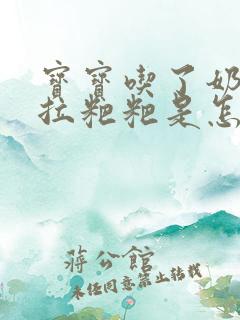 寶寶喫了奶
拉粑粑是怎
蔣公館
未经同意禁止转载